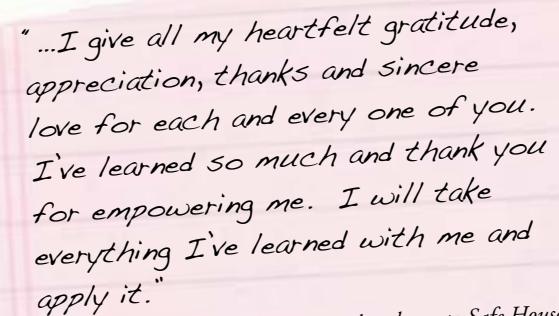 "...I give all my heartfelt gratitude,
appreciation, thanks and sincere
love for each and every one of you.
I've learned so much and thank you
for empowering me. I will take
everything I've learned with me and
apply it."
Safe House